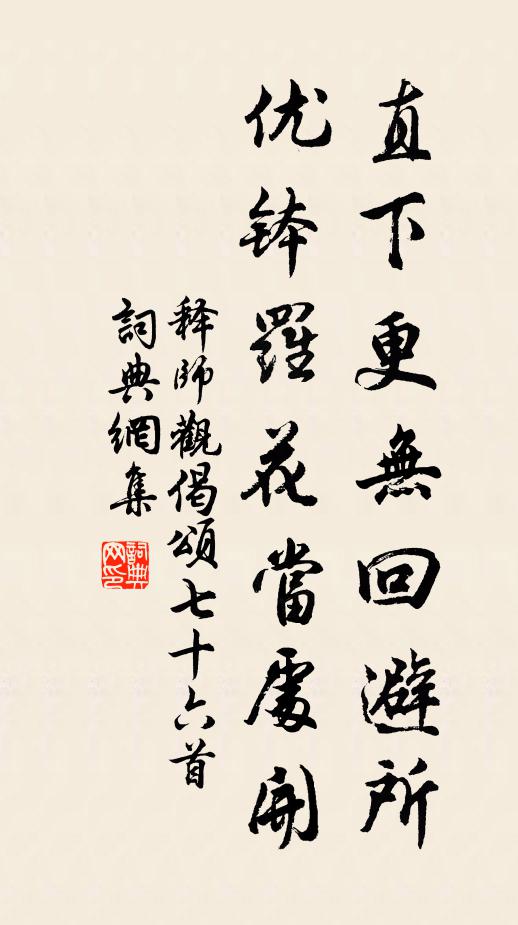 直下更無回避所
优鉢羅花當處開
释師觀偈頌七十六首
詞典網集
詞典网印